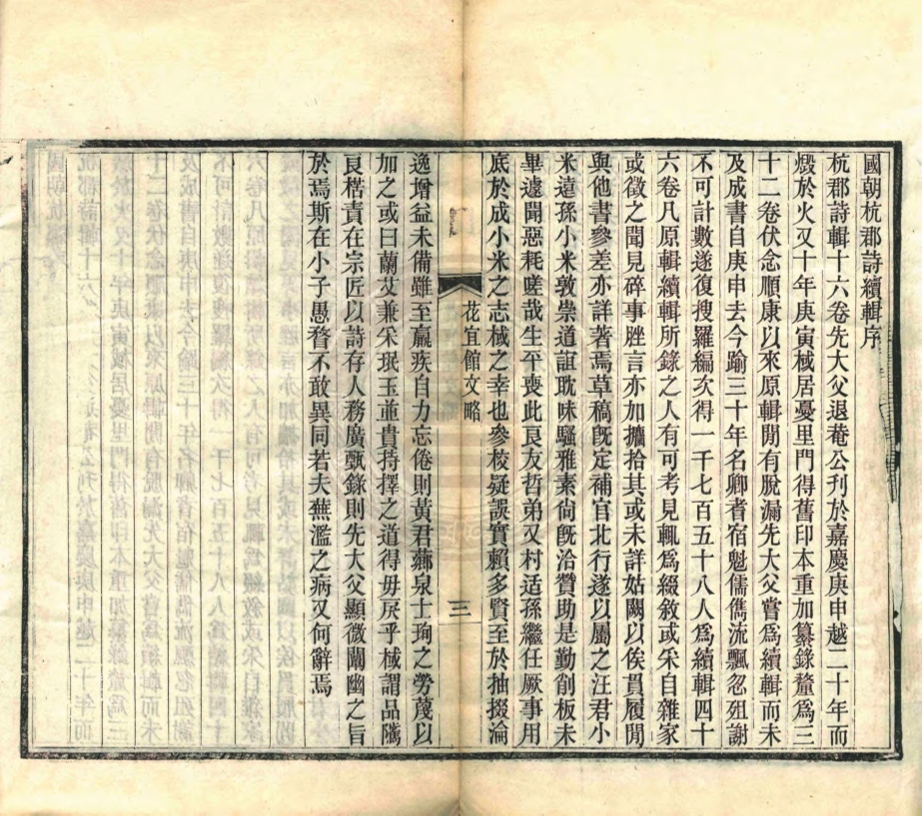 國朝杭郡詩續輯序
杭郡詩輯十六卷先大父退菴公刊於嘉慶庚申越二十年而
燬於火又十年庚寅棫居憂里門得舊印本重加纂錄釐爲三
十二卷伏念順康以來原輯閒有脫漏先大父嘗爲續輯而未
及成書自庚申去今踰三十年名卿耆宿魁儒儁流飄忽殂謝
不可計數遂復搜羅編次得一千七百五十八人爲續輯四十
六卷凡原輯續輯所錄之人有可考見輒爲綴敘或采自雜家
或徵之聞見碎事脞言亦加攟拾其或未詳姑闕以俟貫履閒
與他書參差亦詳著焉草稿旣定補官北行遂以屬之汪君小
米遠孫小米敦崇道誼耽味騷雅素尙旣洽贊助是勤削板未
畢遽聞惡耗嗟哉生平喪此良友哲弟又村适孫繼任厥事用
底於成小米之志棫之幸也參校疑誤實賴多賢至於抽掇淪
花宜館文略
三
逸增益未備雖至羸疾自力忘倦則黃君薌泉士珣之勞蔑以
加之或曰蘭艾兼采珉玉並貴持擇之道得毋戾乎棫謂品隲
良楛責在宗匠以詩存人務廣甄錄則先大父顯微闡幽之旨
於焉斯在小子愚瞀不敢異同若夫蕪濫之病又何辭焉